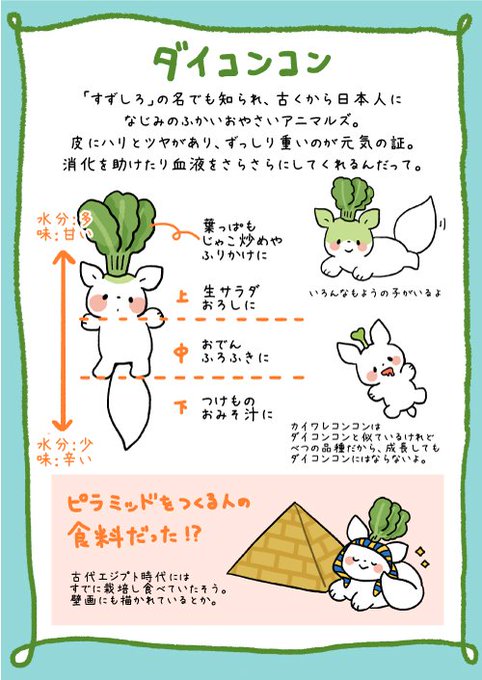 ダイコンコン
「すずしろ」の名でも知られ、古くから日本人に
なじみのふかいおやさいアニマルズ。
皮にハリとツヤがあり、ずっしり重いのが元気の証。
消化を助けたり血液をさらさらにしてくれるんだって。
水分:多
味:甘い
葉っぱも
じゃこ炒めや
ふりかけに
上
生サラダ
おろしに
中
おでん
ふろふきに
下
つけもの
おみそ汁に
水分:少
味:辛い
いろんなもようの子がいるよ
カイワレコンコンは
ダイコンコンと似ているけれど
べつの品種だから、成長しても
ダイコンコンにはならないよ。
ピラミッドをつくる人の
食料だった!?
古代エジプト時代には
すでに栽培し食べていたそう。
壁画にも描かれているとか。